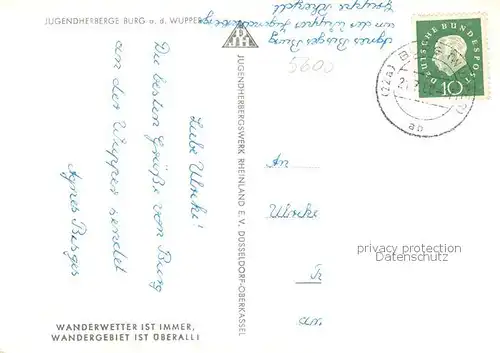 JUGENDHERBERGE BURG a. d. WUPPER
Agnes Bürges Burg
an der Wupper Jugendherberge
Gruppe
5600
DEUTSCHE BUNDESPOST
10
(22a) BURG (WUPPER)
ab
Liebe Ulrike!
Die besten Grüße von Burg
an der Wupper sendet
Agnes Bürges
JUGENDHERBERGSWERK RHEINLAND E.V. DÜSSELDORF-OBERKASSEL
An
Ulrike
privacy protection
Datenschutz
WANDERWETTER IST IMMER,
WANDERGEBIET IST ÜBERALL!